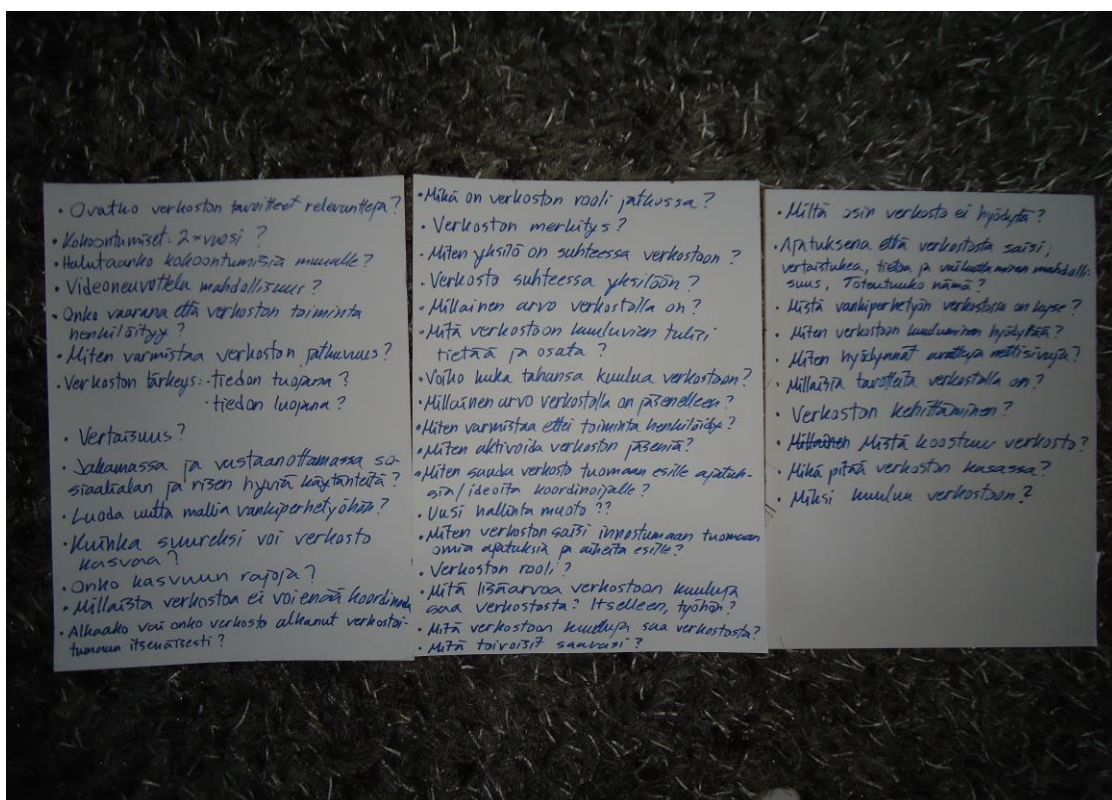 • Ovatko verkoston tavoitteet relevantteja?
• Kokoontumiset: 2 x vuosi ?
• Halutaanko kokoontumisia muualle?
• Videoneuvottelu mahdollisuus ?
• Onko vaarana että verkoston toiminta
henkilöityy ?
• Miten varmistaa verkoston jatkuvuus?
• Verkoston tärkeys: -tiedon tuojana ?
-tiedon luojana ?
• Vertaisuus ?
• Jakamassa ja vastaanottamassa so-
siaalialan ja risen hyviä käytänteitä ?
• Luoda uutta mallia vankiperhetyöhön?
• Kuinka suureksi voi verkosto
kasvaa ?
• Onko kasvuun rajoja ?
• Millaista verkostoa ei voi enää
• Alkaako vai onko verkosto alkanut verkostoi-
tumaan itsenäisesti ?
• Mikä on verkoston rooli jatkossa ?
• Verkoston merkitys ?
• Miten yksilö on suhteessa verkostoon ?
• Verkosto suhteessa yksilöön ?
• Millainen arvo verkostolla on ?
• Mitä verkostoon kuuluvien tulisi
tietää ja osata ?
• Voiko kuka tahansa kuulua verkostoon?
• Millainen arvo verkostolla on jäsenelleen?
• Miten varmistaa ettei toiminta henkilöidy?
• Miten aktivoida verkoston jäseniä?
• Miten saada verkosto tuomaan esille ajatuk-
siin/ideoita koordinoijalle ?
• Uusi hallinta muoto ??
• Miten verkoston saisi innostumaan tuomaan
omia ajatuksia ja aiheita esille?
• Verkoston rooli ?
• Mitä lisäarvoa verkostoon kuuluja
saa verkostosta? Itselleen, työhön ?
• Mitä verkostoon kuuluja saa verkostosta?
• Mitä toivoisit saavasi ?
• Miltä osin verkosto ei hyödytä ?
• Ajatuksena että verkostosta saisi;
vertaistukea, tietoa ja vaikuttamisen mahdolli-
suus, Toteutuuko nämä ?
• Mistä vankiperhetyön verkostossa on kyse ?
• Miten verkostoon kuuluminen hyödyttää?
• Miten hyödynnät nettisivuja?
• Millaisia tavoitteita verkostolla on ?
• Verkoston kehittäminen ?
• Millainen Mistä koostuu verkosto?
• Mikä pitää verkoston kasassa ?
• Miksi kuulua verkostoon ?